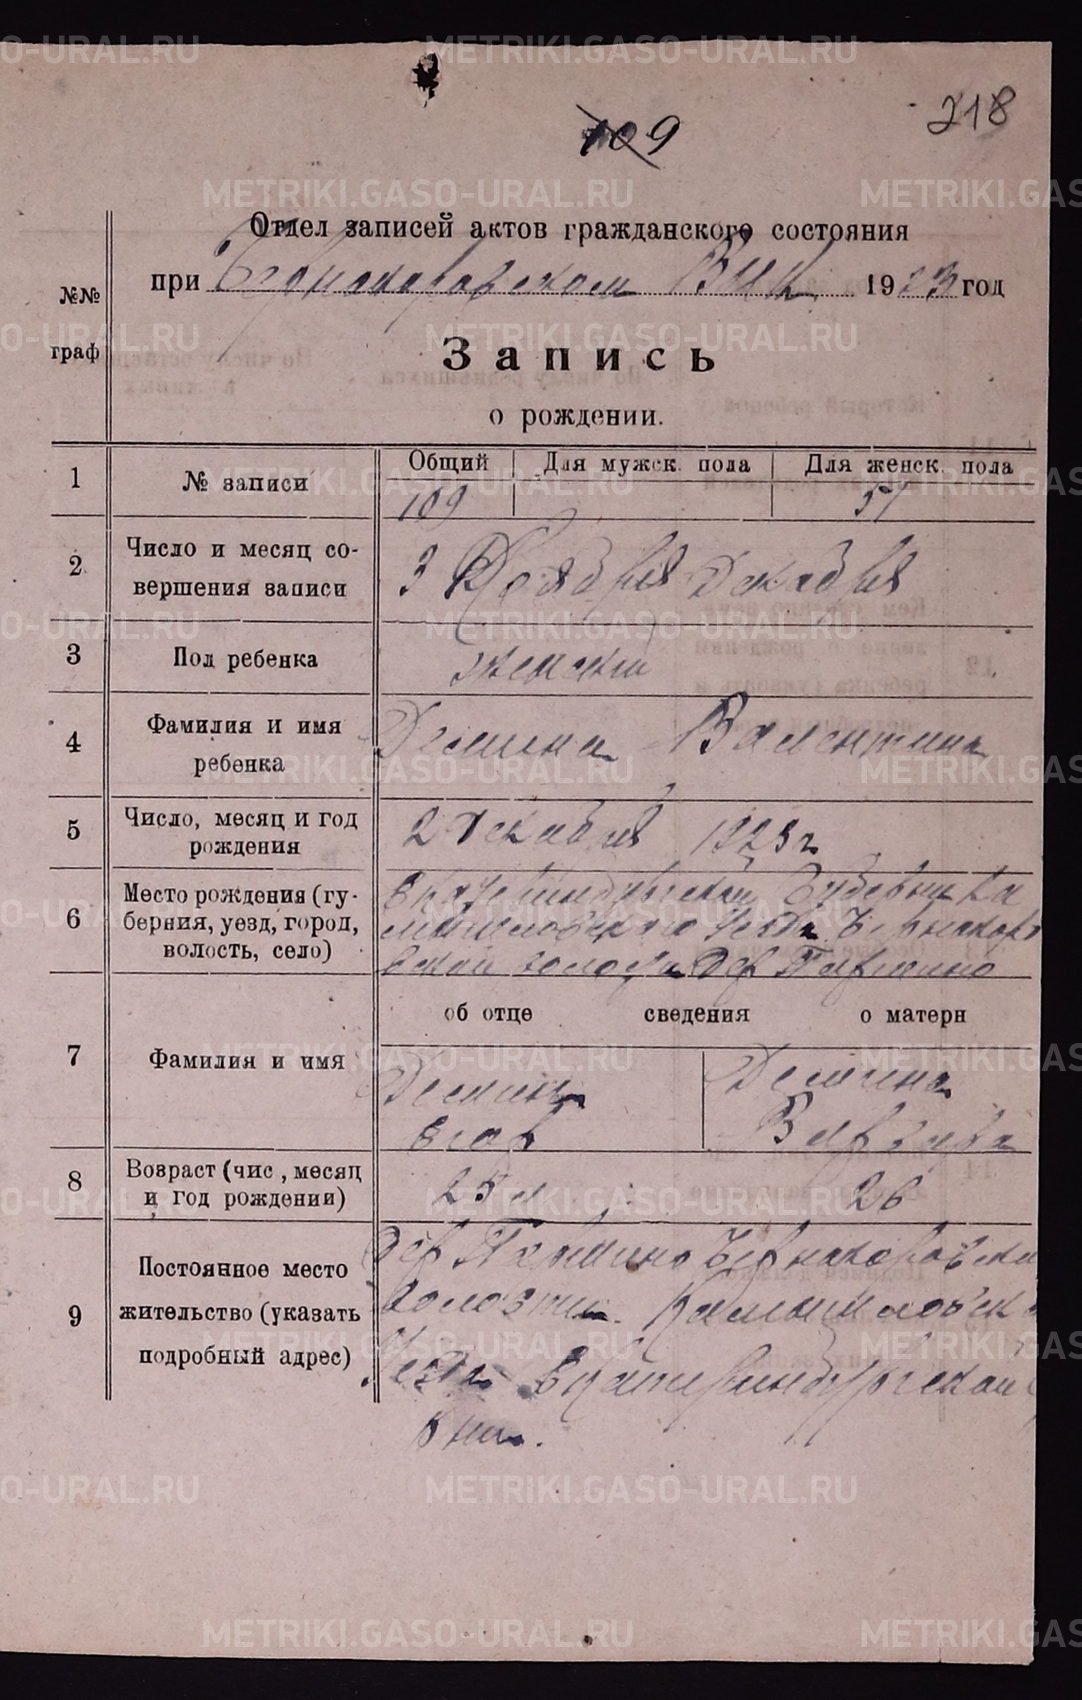 218
109
Отдел записей актов гражданского состояния
при ВИК 1923 год
№№
граф
Запись
о рождении.
Общий Для мужск. пола Для женск. пола
1 № записи 109 51
2 Число и месяц со-
вершения записи
3 Ноября Декабря
3 Пол ребенка женский
4 Фамилия и имя
ребенка
Демина Валентина
5 Число, месяц и год
рождения
2 Декабря 1923 г
6 Место рождения (гу-
берния, уезд, город,
волость, село)
Уезда
волости Дер
об отце сведения о матери
7 Фамилия и имя
Демин Демина
Егор Варвара
8 Возраст (чис, месяц
и год рождения)
25 л 26
9 Постоянное место
жительство (указать
подробный адрес)
Дер
волости
Екатеринбургской
METRIKI.GASO-URAL.RU